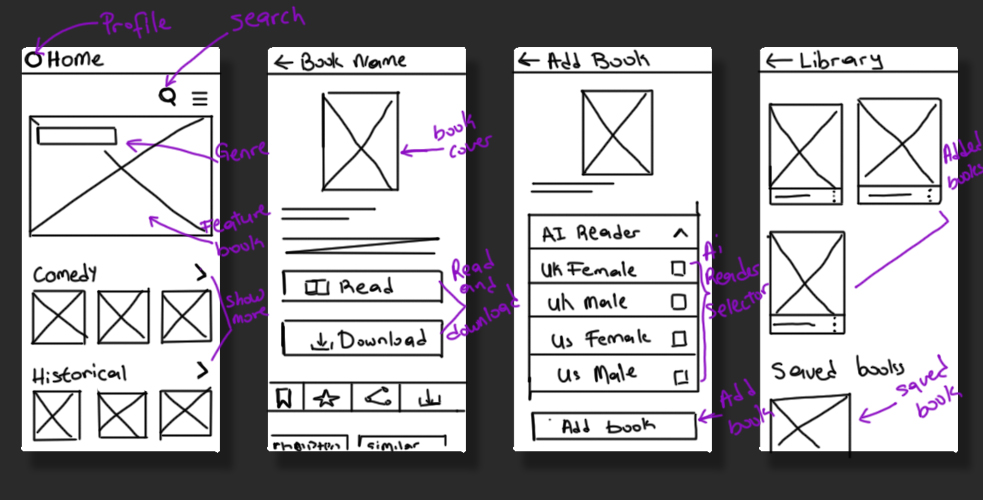 Profile
search
Home
Genre
Feature
book
Comedy
Show
more
Historical
Book Name
book
cover
Read
and
download
Read
Download
similar
Add Book
AI Reader
UK Female
UK Male
US Female
US Male
Ai
Reader
Selector
Add book
Add
book
Library
Added
books
Saved books
saved
book